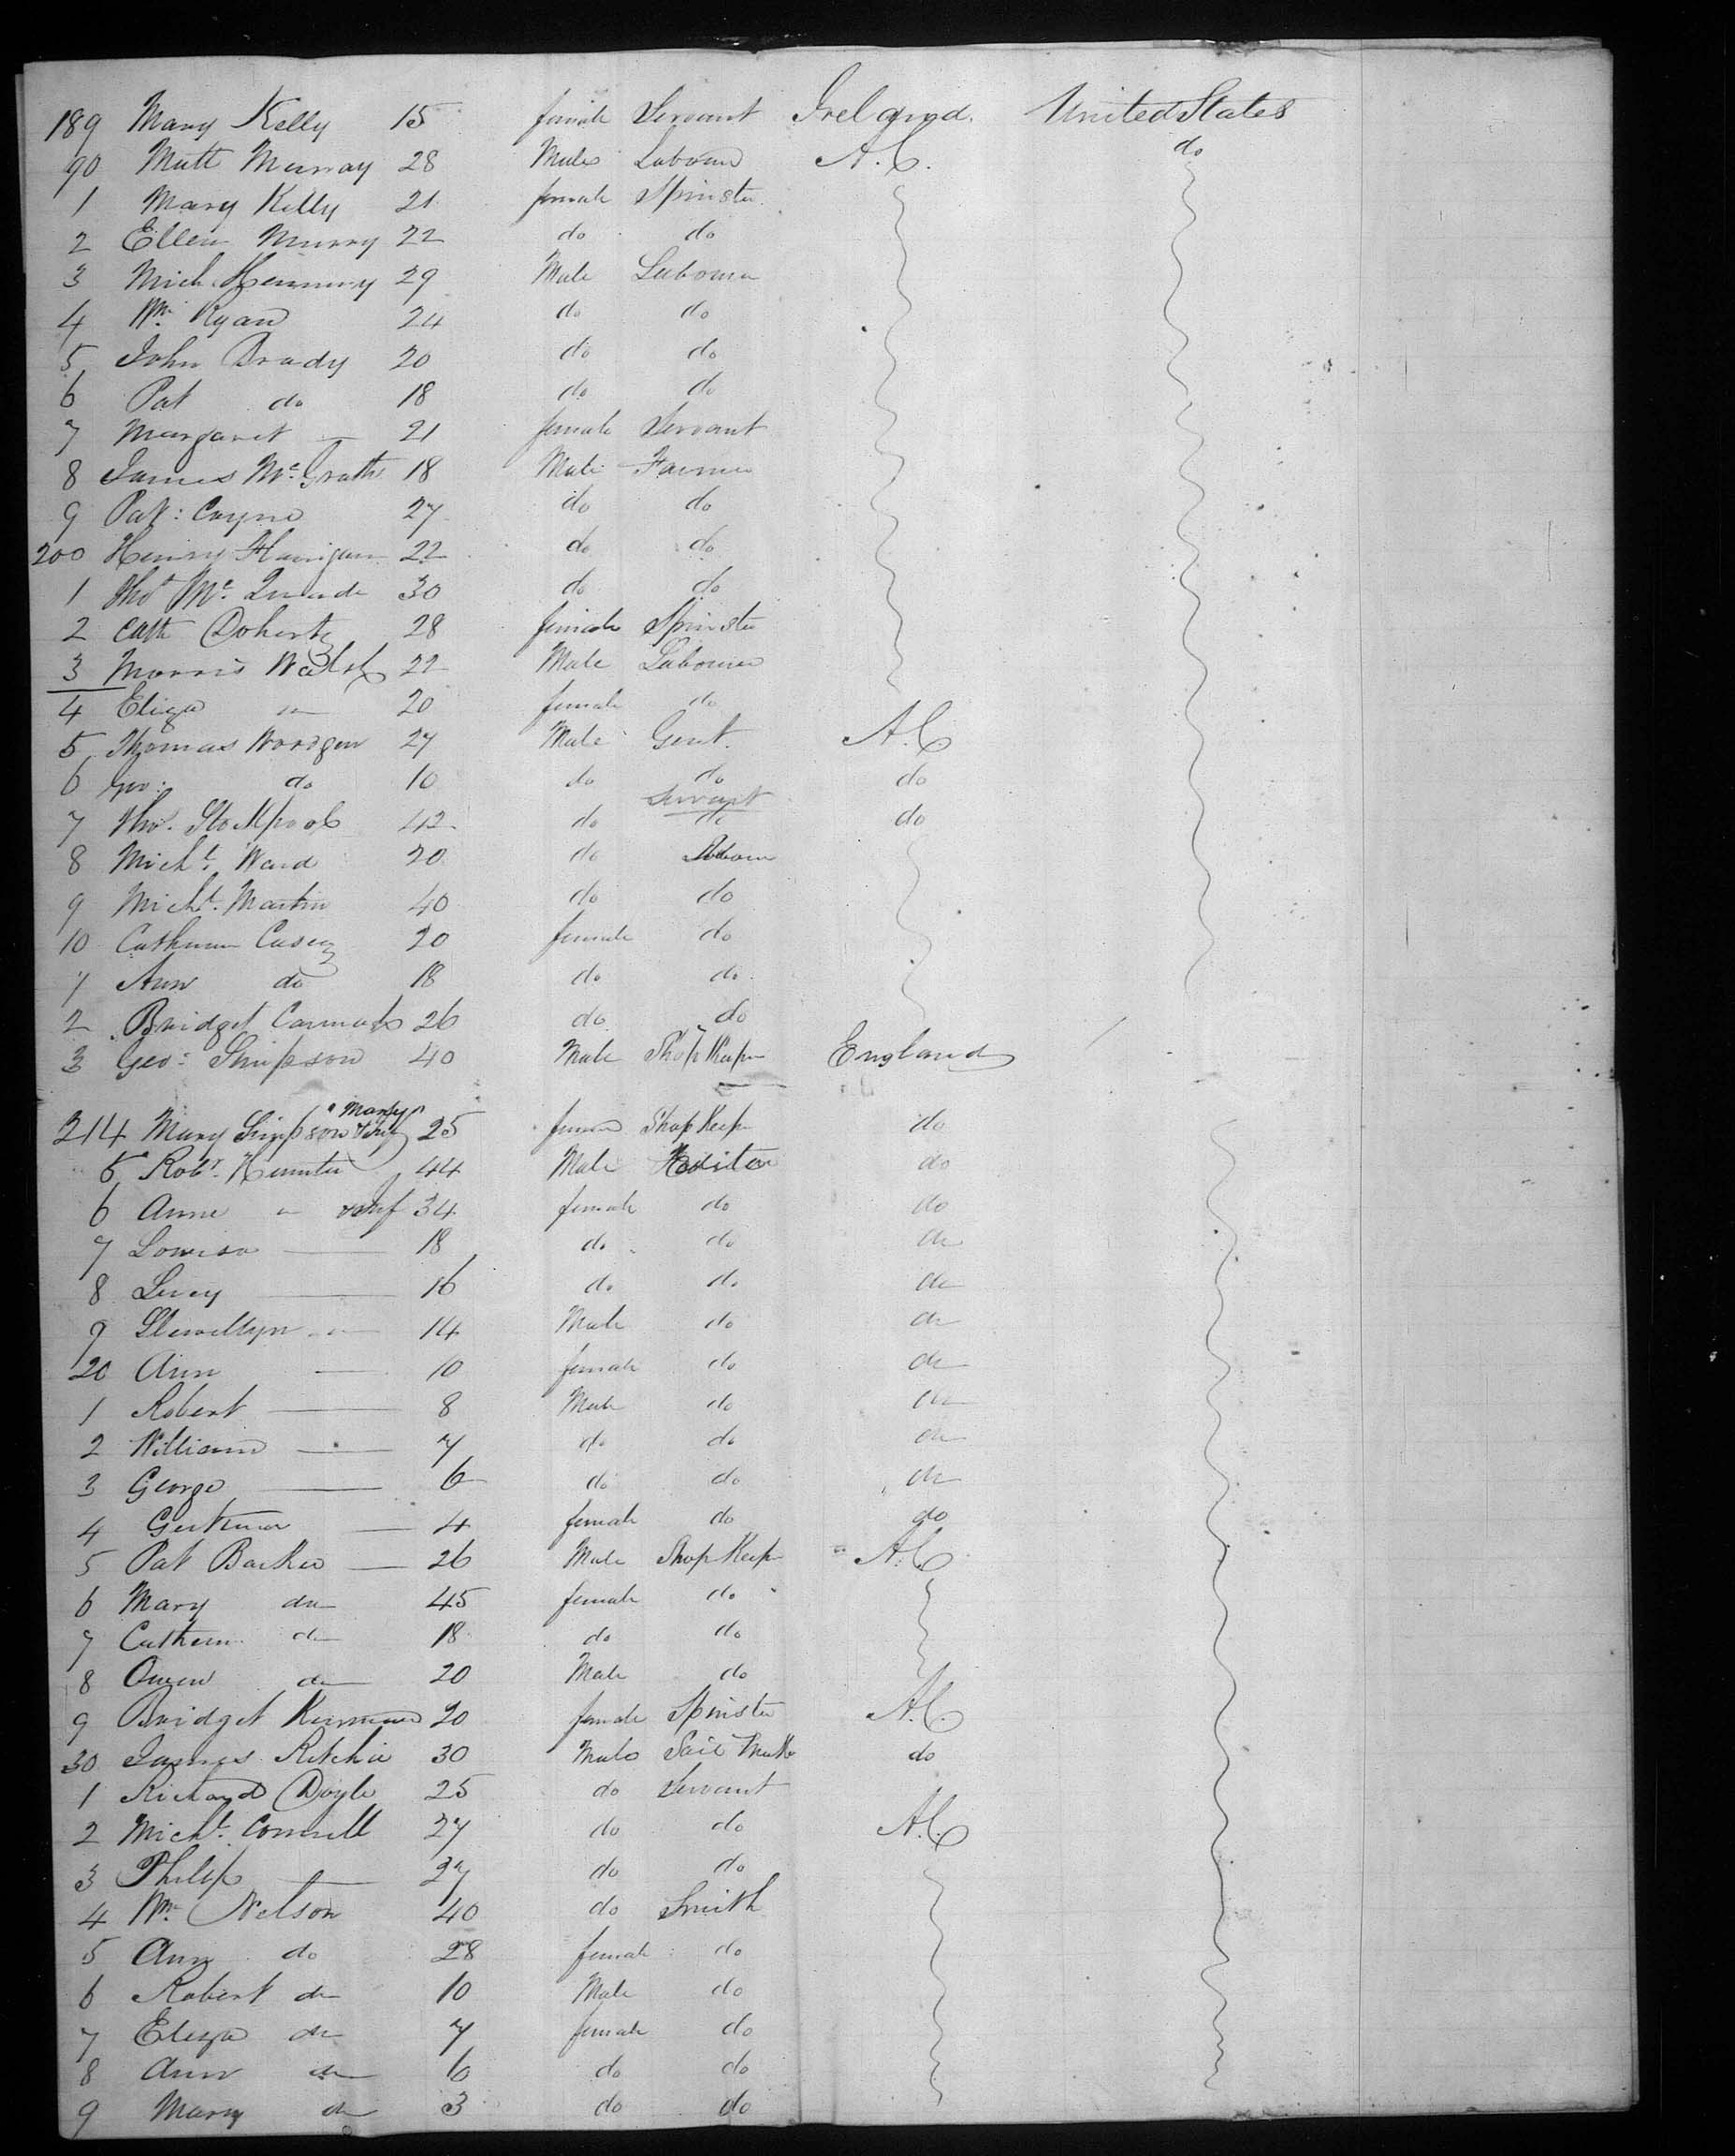 189 Mary Kelly 15 female Servant Ireland. United States
90 Matt Murray 28 Male Labourer A.C. do
1 Mary Kelly 21 female Spinster
2 Ellen Murry 22 do do
3 Mich Hennesy 29 Male Labourer
4 Wm Ryan 24 do do
5 John Brady 20 do do
6 Pat do 18 do do
7 Margaret — 21 female Servant
8 James McGrath 18 Male Farmer
9 Pat: Coyne 27 do do
200 Henry Flanigan 22 do do
1 Thos Mc 30 do do
2 Cath Doherty 28 female Spinster
3 Morris Walsh 22 Male Labourer
4 Eliza 20 female do
5 Thomas 27 Male Gent. A.C
6 Geo: do 10 do do do
Servant
7 Tho. Stockpool 42 do do do
8 Michl. Ward 20 do
9 Michl. Martin 40 do do
10 Casey 20 female do
1 Ann do 18 do do
2 Bridget 26 do do
3 Geo: Simpson 40 Male Shop Keeper England
"Mary"
214 Mary Simpson & Inf 25 female Shop Keep do
5 Robt. Hunter 44 Male do
6 Anne " & Inf 34 female do do
7 Louisa — 18 do do do
8 Lucy — 16 do do do
9 Llewellyn — 14 Male do do
20 Ann — 10 female do do
1 Robert — 8 Male do do
2 William — 7 do do do
3 George — 6 do do do
4 Gertrude — 4 female do do
5 Pat Barker — 26 Male Shop Keep A.C
6 Mary do 45 female do
7 Cathern do 18 do do
8 Owen do 20 Male do
9 Bridget 20 female Spinster A.C.
30 James Ritchie 30 Male Sail Maker do
1 Richard Doyle 25 do Servant
2 Michl. Connell 27 do do A.C
3 Philip — 27 do do
4 Wm. Nelson 40 do Smith
5 Ann do 28 female do
6 Robert do 10 Male do
7 Eliza do 7 female do
8 Ann do 6 do do
9 Mary do 3 do do